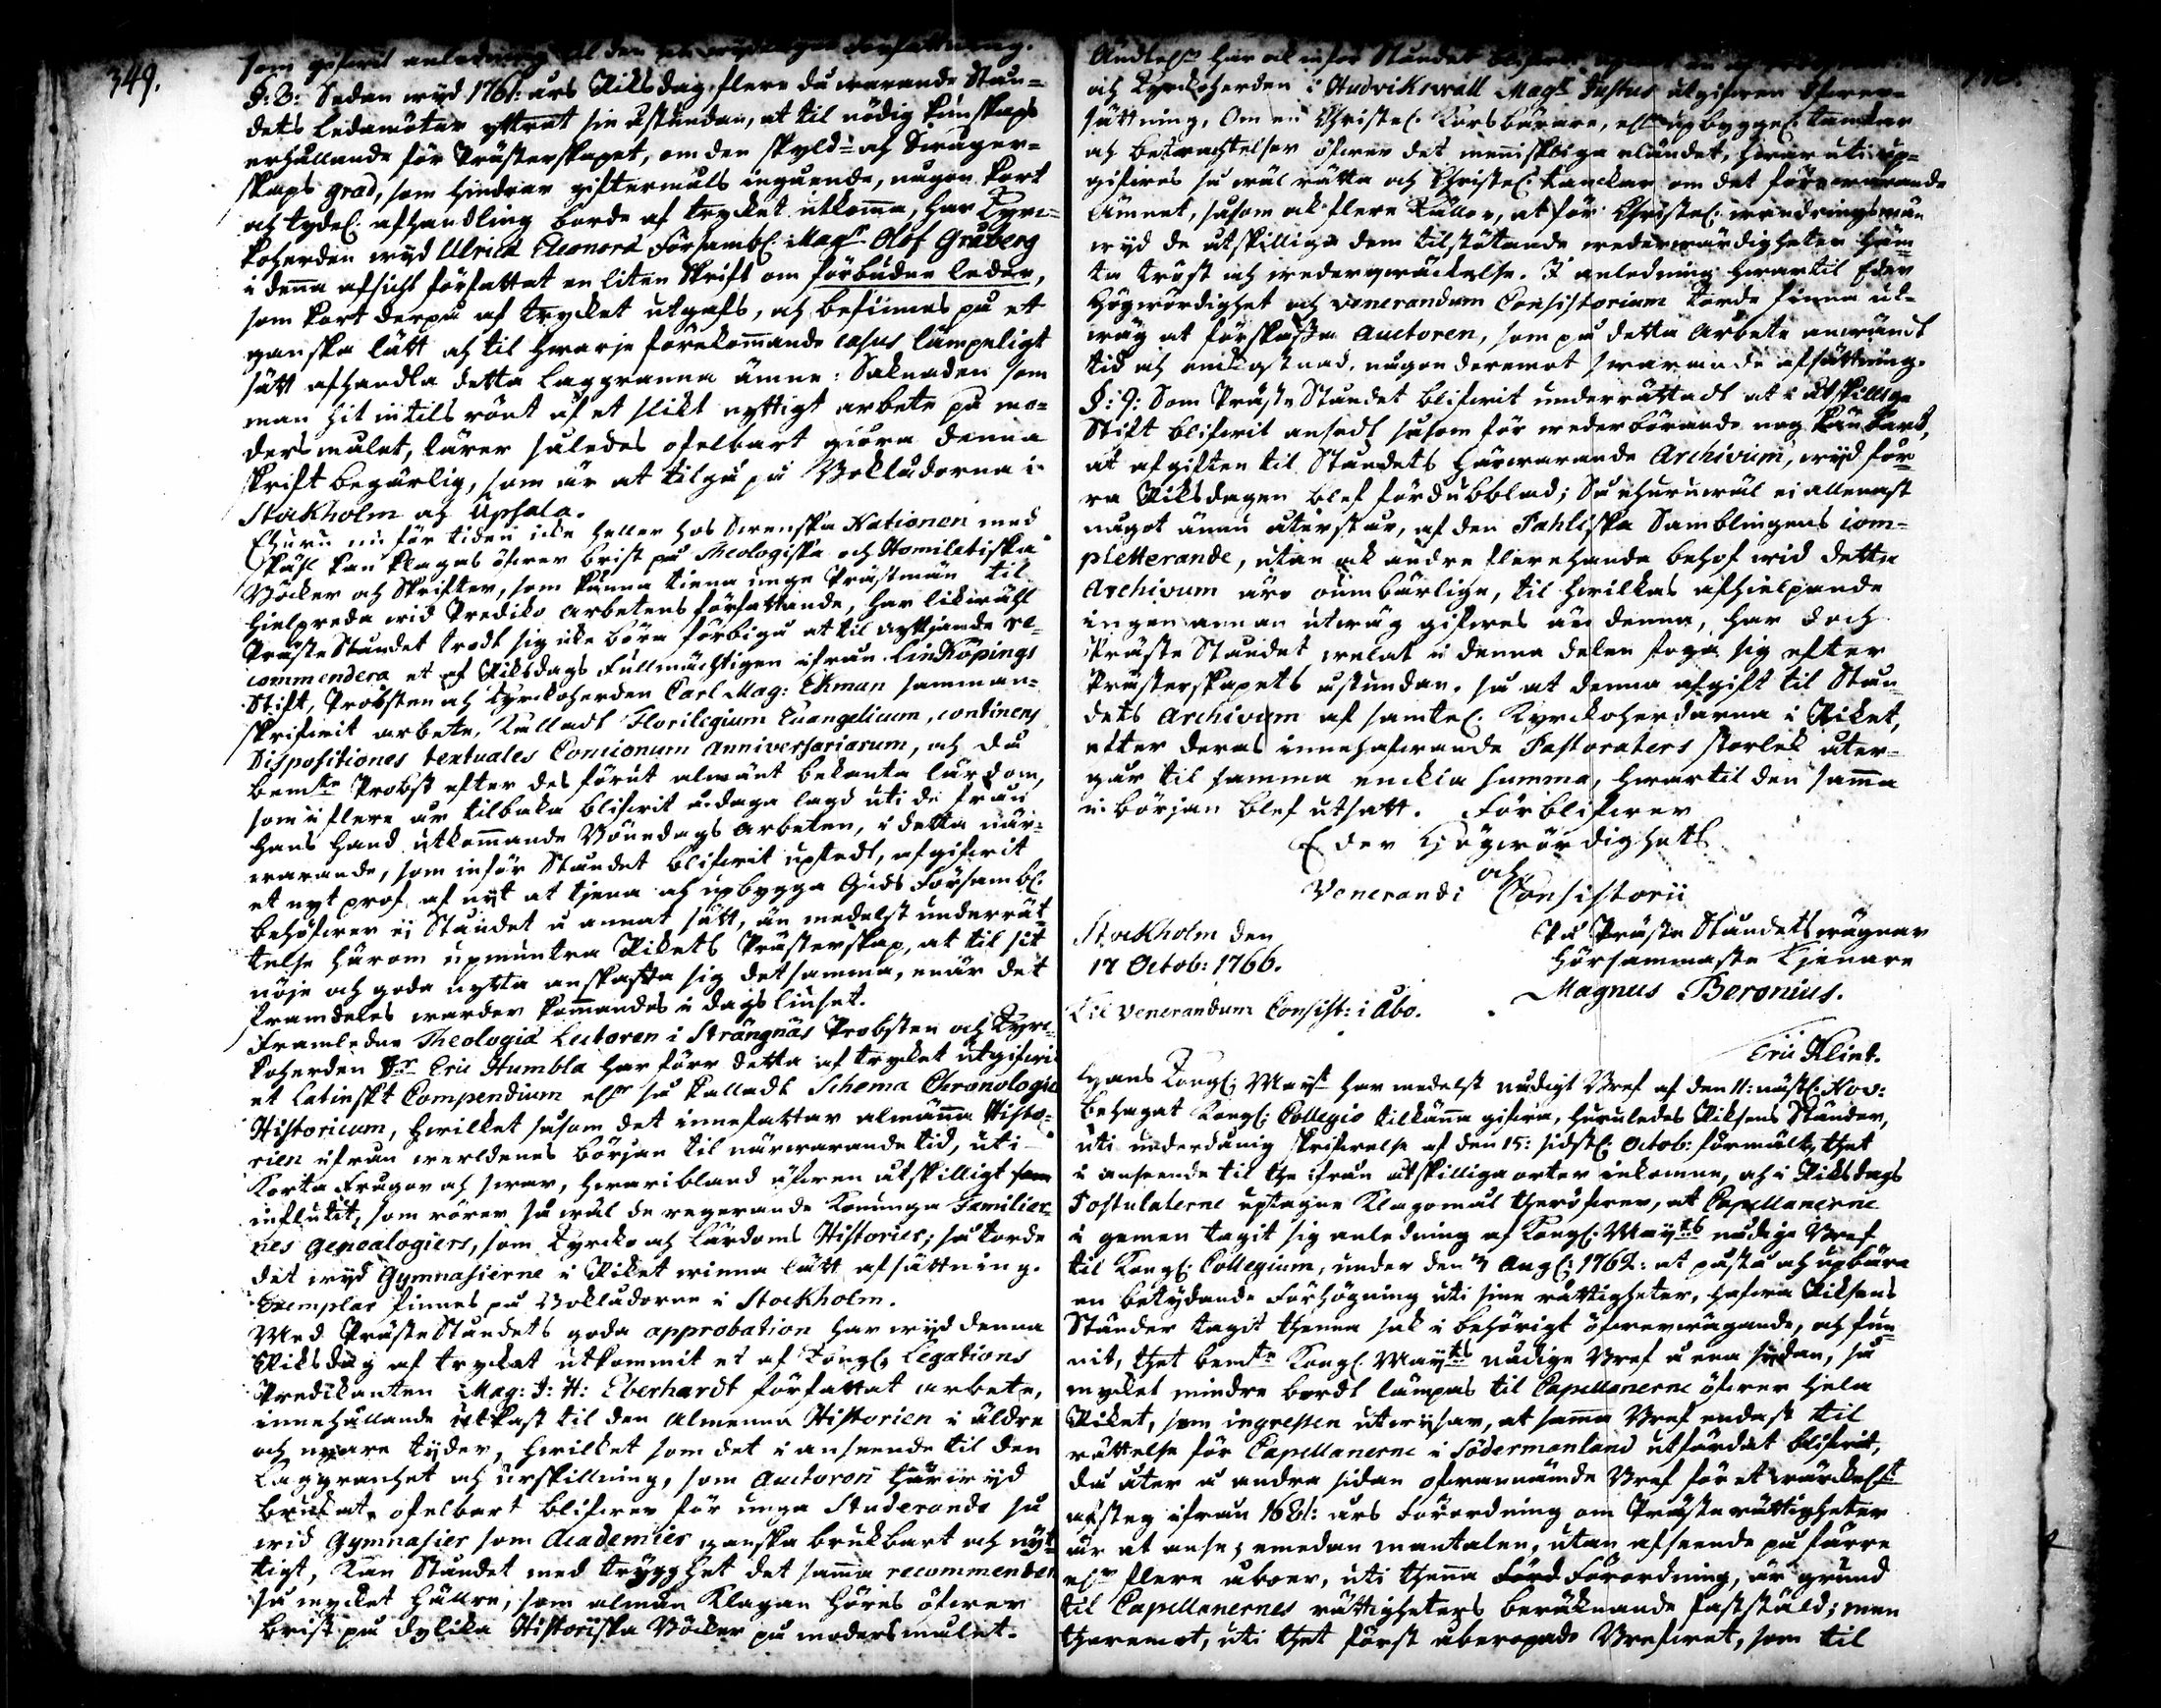 349.
som gifwit anledning til den författning.
§: 8: Sedan wyd 1761: års Riksdag flere då warande Stån=
dets Ledamöter yttrat sin åstundan, at til nödig kunskaps
erhållande för Prästerskapet, om den skyld= och Swåger=
skaps grad, som hindrar giftermåls ingående, någon kort
och tydel: afhandling borde af trycket utkomma, har Kyrc=
koherden wyd Ulrica Eleonora Försambl: Magr Olof Gråberg
i denna afsicht författat en liten Skrift om förbudne leder,
som kort derpå af trycket utgafs, och befinnes på et
ganska lätt och til hwarje förekommande casus lämpeligt
sätt afhandla detta laggranna ämne: Saknaden som
man hit intils rönt af et slikt nyttigt arbete på mo=
dersmålet, lärer således ofelbart giöra denna
skrift begärlig, som är at tilgå på Bokladorna i
Stockholm och Upsala.
Ehuru nu för tiden icke heller hos Swenska Nationen med
skäl kan klagas öfwer brist på Theologiska och Homiletiska
Böcker och Skrifter, som kunna tiena unge Prästmän til
hielpreda wid Prediko arbetens författande, har likwähl
PrästeStåndet trodt sig icke böra förbigå at til nyttjande re=
commendera et af Riksdags Fullmächtigen ifrån Linköpings
Stift, Probsten och Kyrckoherden Carl Mag: Ekman samman=
skrifwit arbete, kalladt Florilegium Euangelicum, continens
Dispositiones textuales Concionum anniversariarum, och då
bemte Probst efter des förut almänt bekanta lärdom,
som i flere år tilbaka blifwit å daga lagd uti de från
hans hand utkommande Bönedags arbeten, i detta när=
warande, som inför Ståndet blifwit upstedt, afgifwit
et nyt prof af nyt at tjena och upbygga Guds Försambl:
behöfwer ej Ståndet å annat sätt, än medelst underrät=
telse härom upmuntra Rikets Prästerskap, at til sit
nöje och goda nytta anskaffa sig det samma, enär det
framdeles warder kommandes i dagsliuset.
Framledne Theologiæ Lectoren i Strängnäs Probsten och Kyrc=
koherden Dr Eric Humbla har förr detta af trycket utgifwit
et Latinskt Compendium elr så kalladt Schema Chronologico
Historicum, hwilket såsom det innefattar almänna Histo=
rien ifrån werldenes början til närwarande tid, uti
Korta Frågor och swar, hwaribland äfwen åtskilligt
influtit, som rörer så wäl de regerande Konunga Familier=
nes Genealogiers, som Kyrcko och Lärdoms Historier; så torde
det wyd Gymnasierne i Riket winna lätt afsättning.
Exemplar finnes på Bokladorne i Stockholm.
Med PrästeStåndets goda approbation har wyd denna
Riksdag af trycket utkommit et af Kongl: Legations
Predikanten Mag: J: H: Eberhardt författat arbete,
innehållande utkast til den Almenna Historien i äldre
och nyare tyder, hwilket som det i anseende til den
Laggranhet och urskillning, som Auctoren härwyd
brukat, ofelbart blifwer för unga Studerande så
wid Gymnasier som Academier ganska brukbart och nyt=
tigt, kan Ståndet med trygghet det samma recommendera
så mycket hällre, som alman klagan höres öfwer
brist på dylika Historiska Böcker på modersmålet.
Ändtel: har ock inför Ståndet blifwit
och Kyrckoherden i Hudvikswall Magr Justus utgifwen öfwer=
sättning, Om en Christel: Korsbärare, elr upbyggel: tanckar
och betrachtelser öfwer det menniskliga eländet, hwaruti up=
gifwes så wäl rätta och Christel: tanckar om det förewarande
ämnet, såsom ock flere Källor, at för Christel: wandringsmän
wyd de åtskilliga dem tilstötande wederwärdigheter häm=
ta tröst och wederqwäckelse. I anledning hwartil Eder
Högwördighet och venerandum Consistorium torde finna ut=
wäg at förskaffa Auctoren, som på detta Arbete anwändt
tid och omkostnad, någon deremot swarande afsättning.
§: 9: Som PrästeStåndet blifwit underrättadt at i åtskillige
Stift blifwit ansedt såsom för wederbörande nog känbart,
at afgiften til Ståndets härwarande Archivum, wyd för=
ra Riksdagen blef fördubblad; Så ehuruwäl ei allenast
något ännu återstår, af den Pahlska Samblingens com=
pletterande, utan ock andre flerehanda behof wid detta
Archivum äro oumbärlige, til hwilkas afhielpande
ingen annan utwäg gifwes än denna, har doch
PrästeStåndet welat i denna delen foga sig efter
Prästerskapets åstundan, så at denna afgift til Stån=
dets Archivum af samtel: Kyrckoherdarna i Riket,
efter deras innehafwande Pastoraters storlek åter=
går til samma enckla summa, hwartil den samma
i början blef utsatt. Förblifwer
Eder Högwördighets
och
Venerandi Consistorii
Stockholm den
17 Octob: 1766.
På PrästeStåndets wägnar
hörsammaste Tjenare
Magnus Beronius.
Til Venerandum Consist: i Åbo.
Eric Klint.
Hans Kongl: Mayt har medelst nådigt Bref af den 11: nästl: Nov:
behagat Kongl: Collegio tilkänna gifwa, huruledes Riksens Ständer,
uti underdånig skrifwelse af den 15: sidstl: Octob: förmält, thet
i anseende til the ifrån åtskilliga orter inkomne, och i Riksdags
Postulaterne uptagne Klagomål theröfwer, at Capellanerne
i gemen tagit sig anledning af Kongl: Mayts nådige Bref
til Kongl: Collegium, under den 3 Aug: 1762: at påstå och upbära
en betydande förhögning uti sine rättigheter, hafwa Riksens
Ständer tagit thenna sak i behörigt öfwerwägande, och fun=
nit, thet bemte Kongl: Mayts nådige Bref å ena sidan, så
mycket mindre bordt lämpas til Capellanerne öfwer hela
Riket, som ingressen utwysar, at samma Bref endast til
rättelse för Capellanerne i Södermanland utfärdat blifwit,
då åter å andra sidan ofwannämde Bref för et wärckelt
afsteg ifrån 1681: års Förordning om Prästerättigheter
är at anse; emedan mantalen, utan afseende på färre
elr flere åboer, uti thenna Förordning, är grund
til Capellanernes rättigheters beräknande faststäld; men
theremot, uti thet först åberopade Brefwet, som til